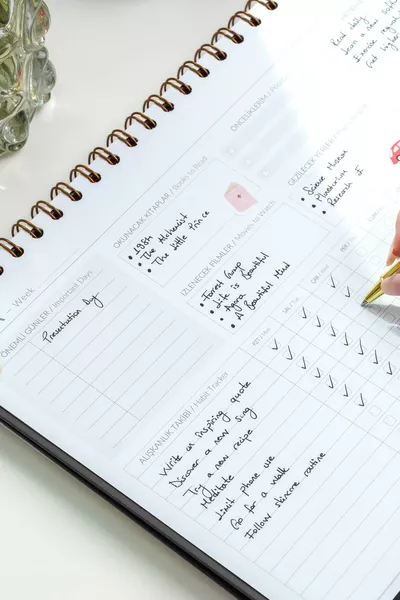 Week
ÖNEMLİ GÜNLER / Important Days
Presentation Day
OKUNACAK KİTAPLAR / Books to Read
1984
The Alchemist
The Little Prince
İZLENECEK FİLMLER / Movies to Watch
Forrest Gump
Life is Beautiful
Agora
A Beautiful Mind
ÖNCELİKLERİM /
GEZİLECEK YERLER /
Science Museum
Planetarium
Research
Read daily
Learn a new
Exercise
ALIŞKANLIK TAKİBİ / Habit Tracker
Write an inspiring quote
Discover a new song
Try a new recipe
Meditate
Limit phone use
Go for a walk
Follow skincare routine